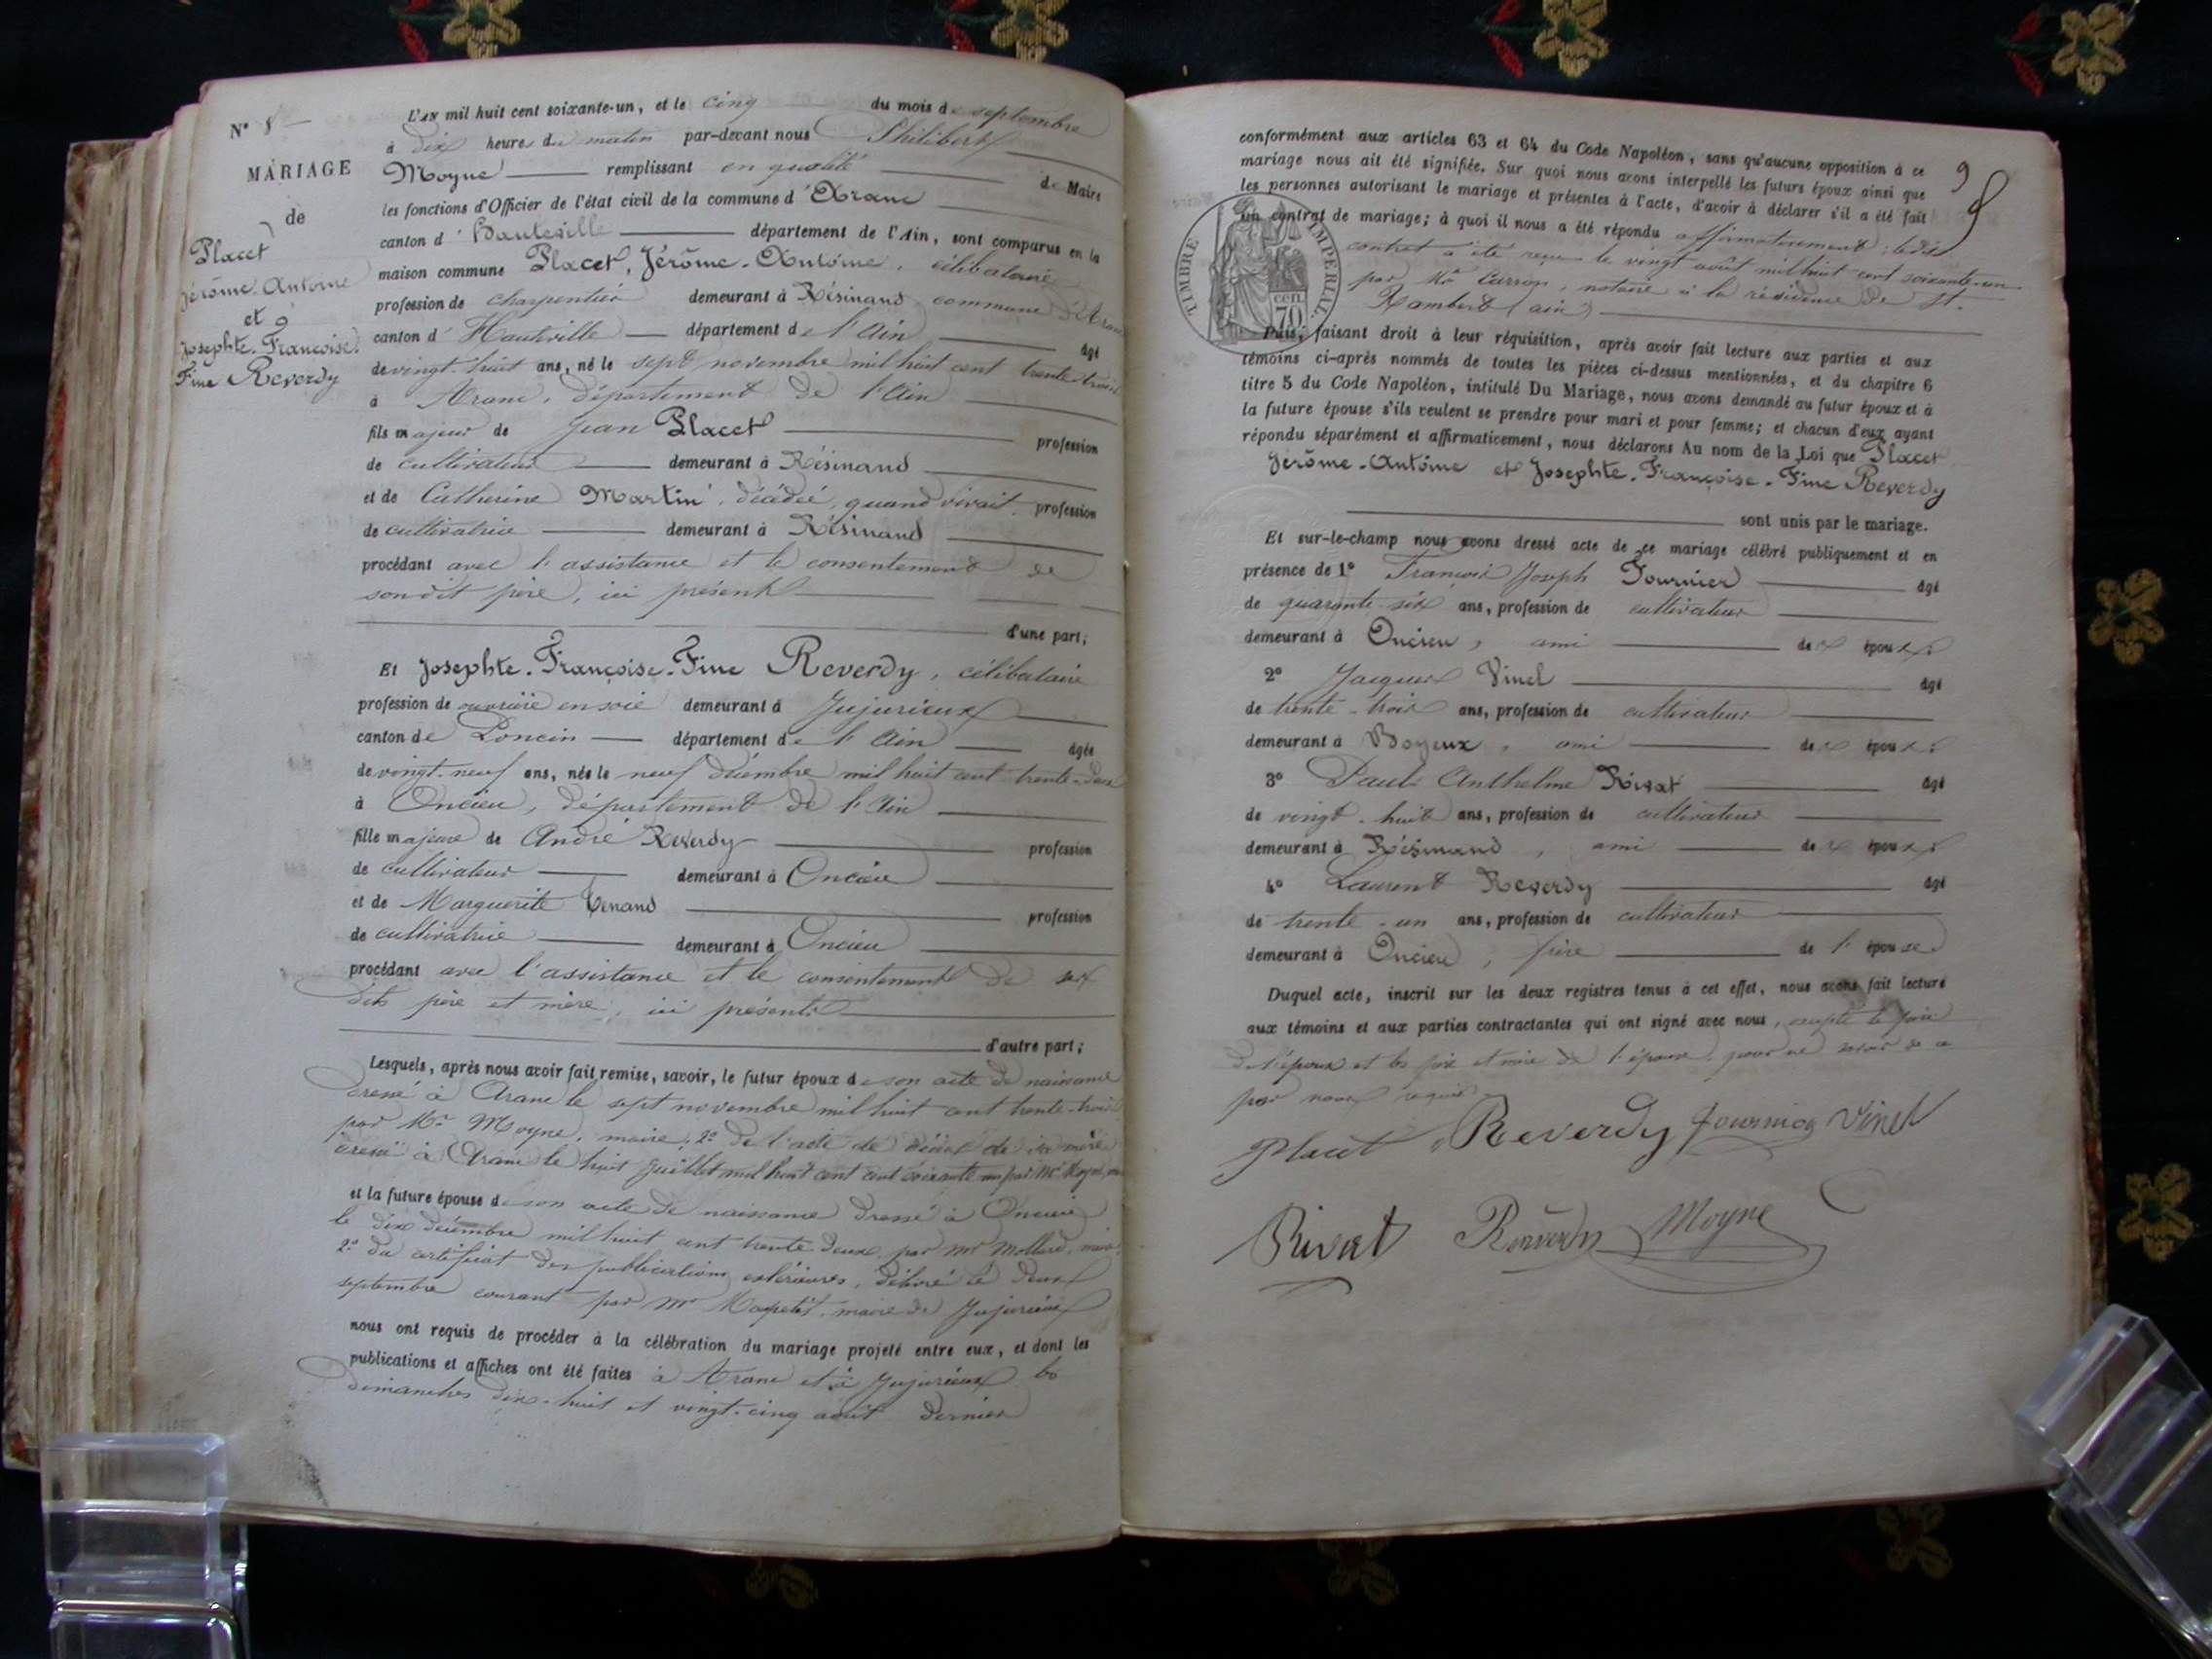 N° 8
MARIAGE
de
Placet
Jérôme-Antoine
et
Josephte-Françoise-
Fine Reverdy
L'AN mil huit cent soixante-un, et le cinq du mois de septembre
à dix heures du matin par-devant nous Philibert
Moyne remplissant en qualité de Maire
les fonctions d'Officier de l'état civil de la commune d'Aranc
canton d'Hauteville département de l'Ain, sont comparus en la
maison commune Placet, Jérôme-Antoine, célibataire
profession de charpentier demeurant à Résinand commune d'Aranc
canton d'Hauteville département de l'Ain âgé
de vingt-huit ans, né le sept novembre mil huit cent trente-trois
à Aranc, département de l'Ain
fils majeur de Jean Placet profession
de cultivateur demeurant à Résinand
et de Catherine Martin, décédée, quand vivait profession
de cultivatrice demeurant à Résinand
procédant avec l'assistance et le consentement de
son dit père, ici présent
d'une part;
Et Josephte-Françoise-Fine Reverdy, célibataire
profession de ouvrière en soie demeurant à Jujurieux
canton de Poncin département de l'Ain âgée
de vingt-neuf ans, née le neuf décembre mil huit cent trente-deux
à Oncieu, département de l'Ain
fille majeure de André Reverdy profession
de cultivateur demeurant à Oncieu
et de Marguerite Tenand profession
de cultivatrice demeurant à Oncieu
procédant avec l'assistance et le consentement de ses
dits père et mère, ici présents
d'autre part;
Lesquels, après nous avoir fait remise, savoir, le futur époux de son acte de naissance
dressé à Aranc le sept novembre mil huit cent trente-trois
par Mr Moyne, maire, 2° de l'acte de décès de sa mère
dressé à Aranc le huit juillet mil huit cent cent soixante un par Mr Moyne,
et la future épouse de son acte de naissance dressé à Oncieu
le dix décembre mil huit cent trente deux par Mr Mollard, maire,
2° du certificat des publications extérieures, délivré le deux
septembre courant par Mr maire de Jujurieux
nous ont requis de procéder à la célébration du mariage projeté entre eux, et dont les
publications et affiches ont été faites à Aranc et à Jujurieux les
dimanches dix-huit et vingt-cinq août dernier
9
conformément aux articles 63 et 64 du Code Napoléon, sans qu'aucune opposition à ce
mariage nous ait été signifiée. Sur quoi nous avons interpellé les futurs époux ainsi que
les personnes autorisant le mariage et présentes à l'acte, d'avoir à déclarer s'il a été fait
un contrat de mariage; à quoi il nous a été répondu affirmativement; ledit
contrat a été reçu le vingt août mil huit cent soixante-un
par Me Carron, notaire à la résidence de St.
Rambert (ain)
TIMBRE IMPERIAL
cen. 70
Puis, faisant droit à leur réquisition, après avoir fait lecture aux parties et aux
témoins ci-après nommés de toutes les pièces ci-dessus mentionnées, et du chapitre 6
titre 5 du Code Napoléon, intitulé Du Mariage, nous avons demandé au futur époux et à
la future épouse s'ils veulent se prendre pour mari et pour femme; et chacun d'eux ayant
répondu séparément et affirmativement, nous déclarons Au nom de la Loi que Placet
Jérôme-Antoine et Josephte-Françoise-Fine Reverdy
sont unis par le mariage.
Et sur-le-champ nous avons dressé acte de ce mariage célébré publiquement et en
présence de 1° François Joseph Fournier âgé
de quarante-six ans, profession de cultivateur
demeurant à Oncieu, ami des époux
2° Jacques Vinel âgé
de trente-trois ans, profession de cultivateur
demeurant à Boyeux, ami des époux
3° Paul Anthelme Rivat âgé
de vingt-huit ans, profession de cultivateur
demeurant à Résinand, ami des époux
4° Laurent Reverdy âgé
de trente-un ans, profession de cultivateur
demeurant à Oncieu, frère de l'épouse
Duquel acte, inscrit sur les deux registres tenus à cet effet, nous avons fait lecture
aux témoins et aux parties contractantes qui ont signé avec nous, excepté le père
de l'époux et les père et mère de l'épouse, pour ne savoir de ce
par nous requis.
Placet Reverdy Fournier Vinel
Rivat Reverdy Moyne